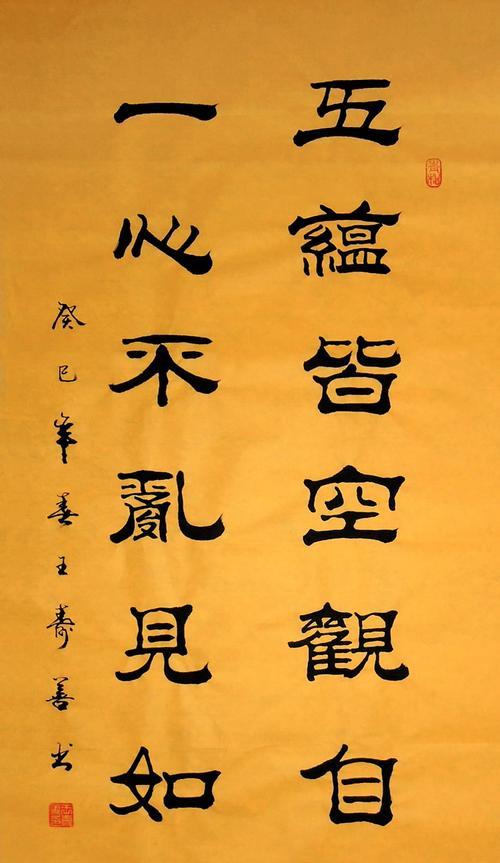 五蘊皆空觀自
一心不亂見如
癸巳年春王壽善書